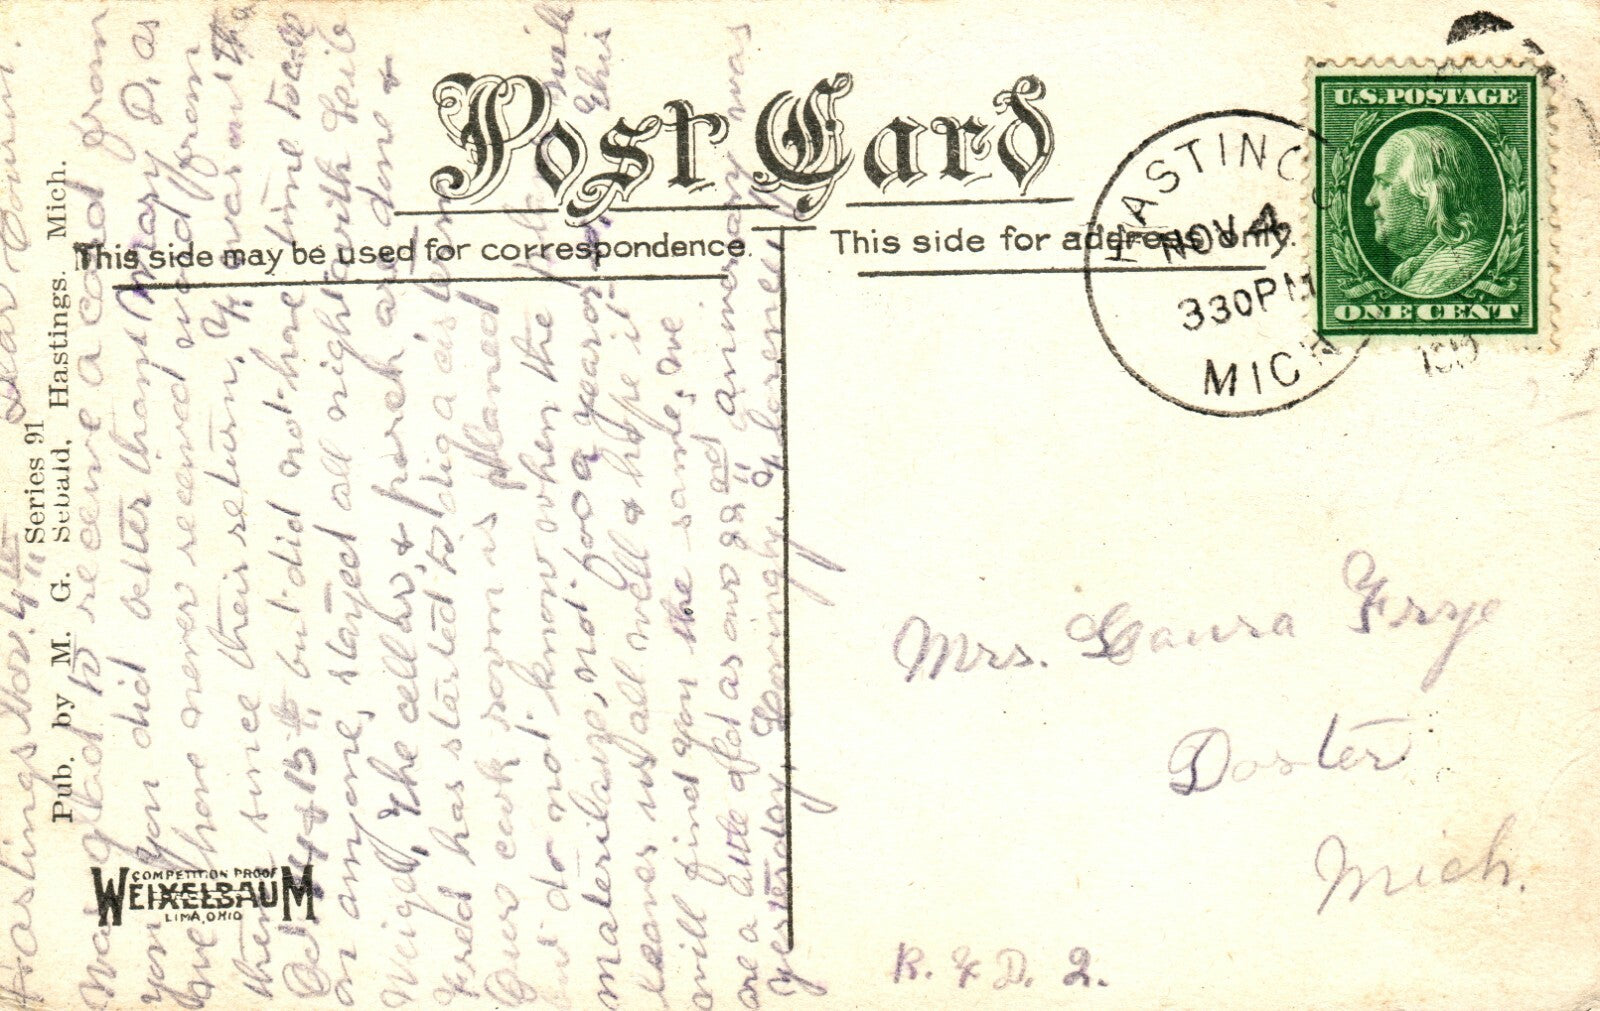 Post Card
This side may be used for correspondence.
This side for address only.
HASTINGS
NOV 4
330PM
MICH
U.S.POSTAGE
ONE CENT
Series 91
Pub. by M. G. Sebald, Hastings. Mich.
COMPETITION PROOF
WEIXELBAUM
LIMA, OHIO
Hastings Nov. 4th Dear Cousin.
Was glad to receive a card from
you you did better than Mary D. as
we have never received word from
them since their return, H. was
Oct. 14 & 15th but did not have time to call
on anyone, stayed all night with
The cellar, & porch are done &
Fred has started to dig a cistern
Our cook room is planned
but do not know when the
materilaize, not for a year
leaves us all well & hope it
will find you the same, we
are a little of as our 22nd anniversary was
yesterday, Lovingly,
Mrs. Laura Frye
Doster
Mich.
R. F. D. 2.